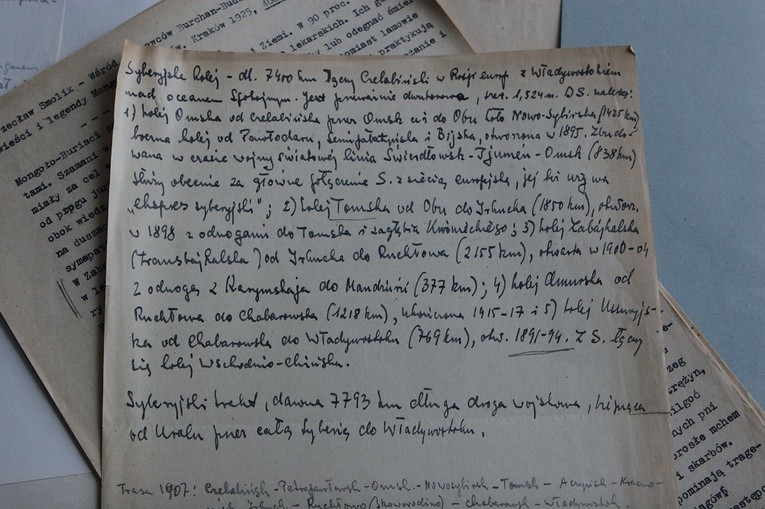 czesław Smolik - Wśród
Kraków 1925,
wieści i legendy Mong
Mongoło-Buriaci
tami. Szamani
miały za cel
obok wiedz
na duszac
sympat
W Zaba
Ziemi. W 90 proc.
lekarskich. Ich
lub odegnać
lamowie
praktykują
Syberyjska kolej - dł. 7400 km łączy Czelabińsk w Rosji europ z Władywostokiem
nad oceanem Spokojnym. Jest przeważnie dwutorowa, szer. 1,524 m. Do S. należą:
1) kolej Omska od Czelabińska przez Omsk aż do Obu koło Nowo-Sybirska (1425 km)
boczna kolej od Pawłodaru, Semipałatyńska i Bijska, otworzona w 1895. Zbudo-
wana w czasie wojny światowej linia Swierdłowsk-Tjumén-Omsk (838 km)
służy obecnie za główne połączenie S. z siecią europejską, jej też używa
„ekspres syberyjski"; 2) kolej Tomska od Obu do Irkucka (1850 km), otworz.
w 1898 z odnogami do Tomska i zagłębia Kuźnieckiego; 3) kolej Zabajkalska
(transbajkalska) od Irkucka do Ruchłowa (2155 km), otwarta w 1900-04
z odnogą z Karymskaja do Mandżurii (377 km); 4) kolej Amurska od
Ruchłowa do Chabarowska (1218 km), ukończona 1915-17 i 5) kolej Ussuryjs-
ka od Chabarowska do Władywostoku (769 km), otw. 1891-94. Z S. łączy
się kolej Wschodnio-chińska.
Syberyjski trakt, dawna 7793 km długa droga wojskowa, bieżąca
od Uralu przez całą Syberię do Władywostoku.
Trasa 1907: Czelabińsk-Petropawłowsk-Omsk-Nowosybirsk-Tomsk-Aczyńsk-Krasno-
Ruchłowo (Skoworodino) - Chabarowsk - Władywostok.
zeg
krężyn,
ilgoć
nych pni
orosłe mchem
i skarbów.
pominają trage-